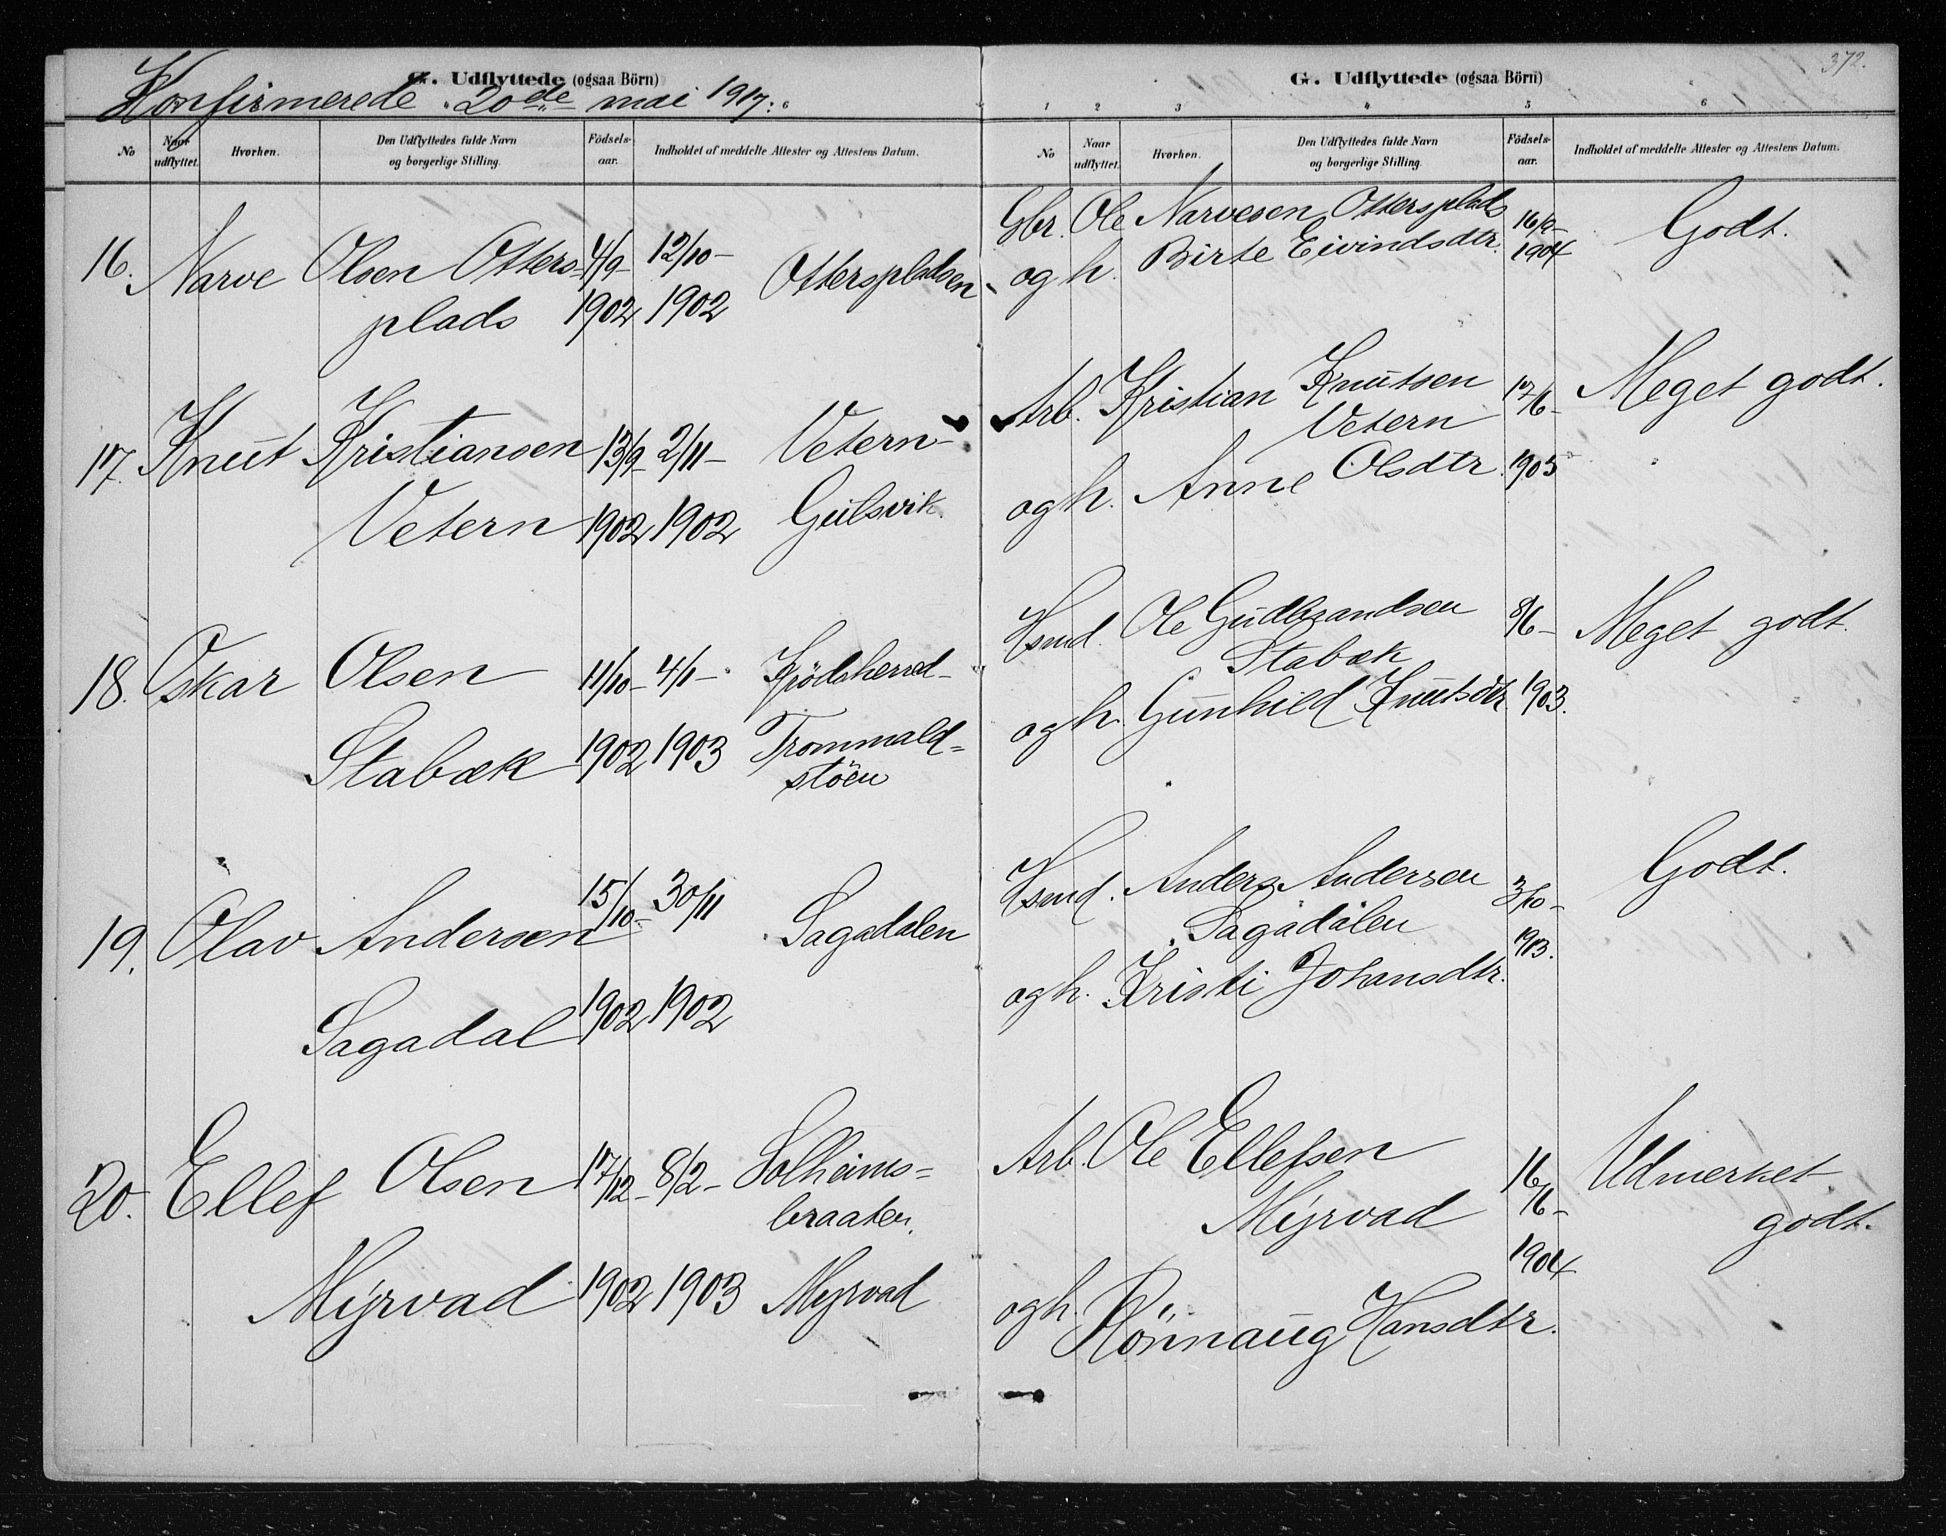 G. Udflyttede (ogsaa Börn)
Konfirmerede 20de mai 1917.
6
No
Naar udflyttet.
Hvorhen.
Den Udflyttedes fulde Navn og borgerlige Stilling.
Födsels-aar.
Indholdet af meddelte Attester og Attestens Datum.
16. Narve Olsen Otters- 4/9- 12/10- Otterspladsen
plads 1902 1902
17. Knut Kristiansen 13/9- 2/11- Vetern-
Vetern 1902 1902 Gulsvik.
18. Oskar Olsen 11/10- 4/1- Krödsherred-
Stabæk 1902 1903 Trommald=
støen
19. Olav Andersen 15/10- 30/11 Sagadalen
Sagadal 1902 1902
20. Ellef Olsen 17/12- 8/2- Solheims=
braaten.
Myrvad 1902 1903 Myrvad
372.
G. Udflyttede (ogsaa Börn)
1 2 3 4 5 6
No
Naar udflyttet.
Hvorhen.
Den Udflyttedes fulde Navn og borgerlige Stilling.
Födsels-aar.
Indholdet af meddelte Attester og Attestens Datum.
Gbr. Ole Narvesen Ottersplads Godt.
og h. Birte Eivindsdtr. 1904
Arb. Kristian Knutsen 17/6- Meget godt.
Vetern
og h. Anne Olsdtr. 1905
Hsmd. Ole Gudbrandsen 8/6- Meget godt.
Stabæk
og h. Gunhild Knutsdtr. 1903.
Hsmd. Anders Andersen 3/10- Godt.
Sagadalen
og h. Kristi Johansdtr. 1903.
Arb. Ole Ellefsen 16/6- Udmerket
Myrvad godt.
1904
og h. Rönnaug Hansdtr.